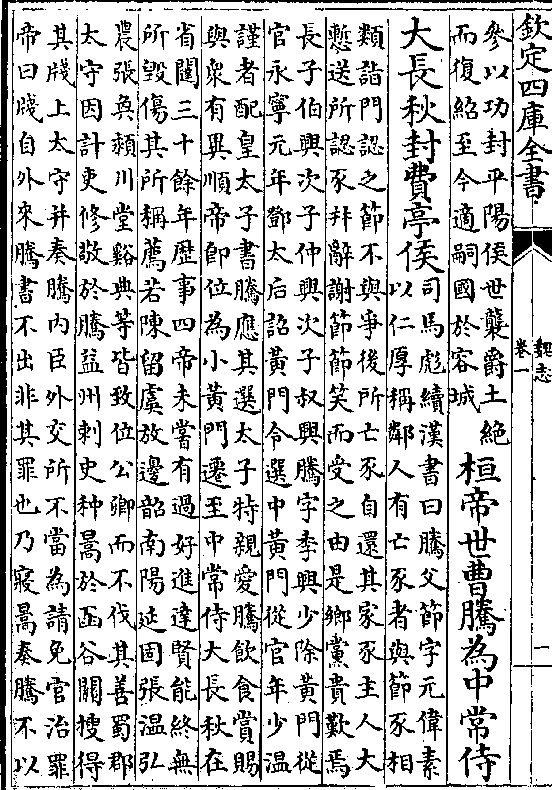 欽定四庫全書
魏志
卷一
一
參以功封平陽侯世襲爵土絕
而復紹至今適嗣國於容城
桓帝世曹騰為中常侍
大長秋封費亭侯
司馬彪續漢書曰騰父節字元偉素
以仁厚稱鄰人有亡豕者與節豕相
類詣門認之節不與爭後所亡豕自還其家豕主人大
慙送所認豕并辭謝節節笑而受之由是鄉黨貴歎焉
長子伯興次子仲興次子叔興騰字季興少除黃門從
官永寧元年鄧太后詔黃門令選中黃門從官年少溫
謹者配皇太子書騰應其選太子特親愛騰飲食賞賜
與衆有異順帝即位為小黃門遷至中常侍大長秋在
省闥三十餘年歷事四帝未嘗有過好進達賢能終無
所毀傷其所稱薦若陳留虞放邊韶南陽延固張溫弘
農張奐潁川堂谿典等皆致位公卿而不伐其善蜀郡
太守因計吏修敬於騰益州刺史种暠於函谷關搜得
其牋上太守并奏騰內臣外交所不當為請免官治罪
帝曰牋自外來騰書不出非其罪也乃寢暠奏騰不以